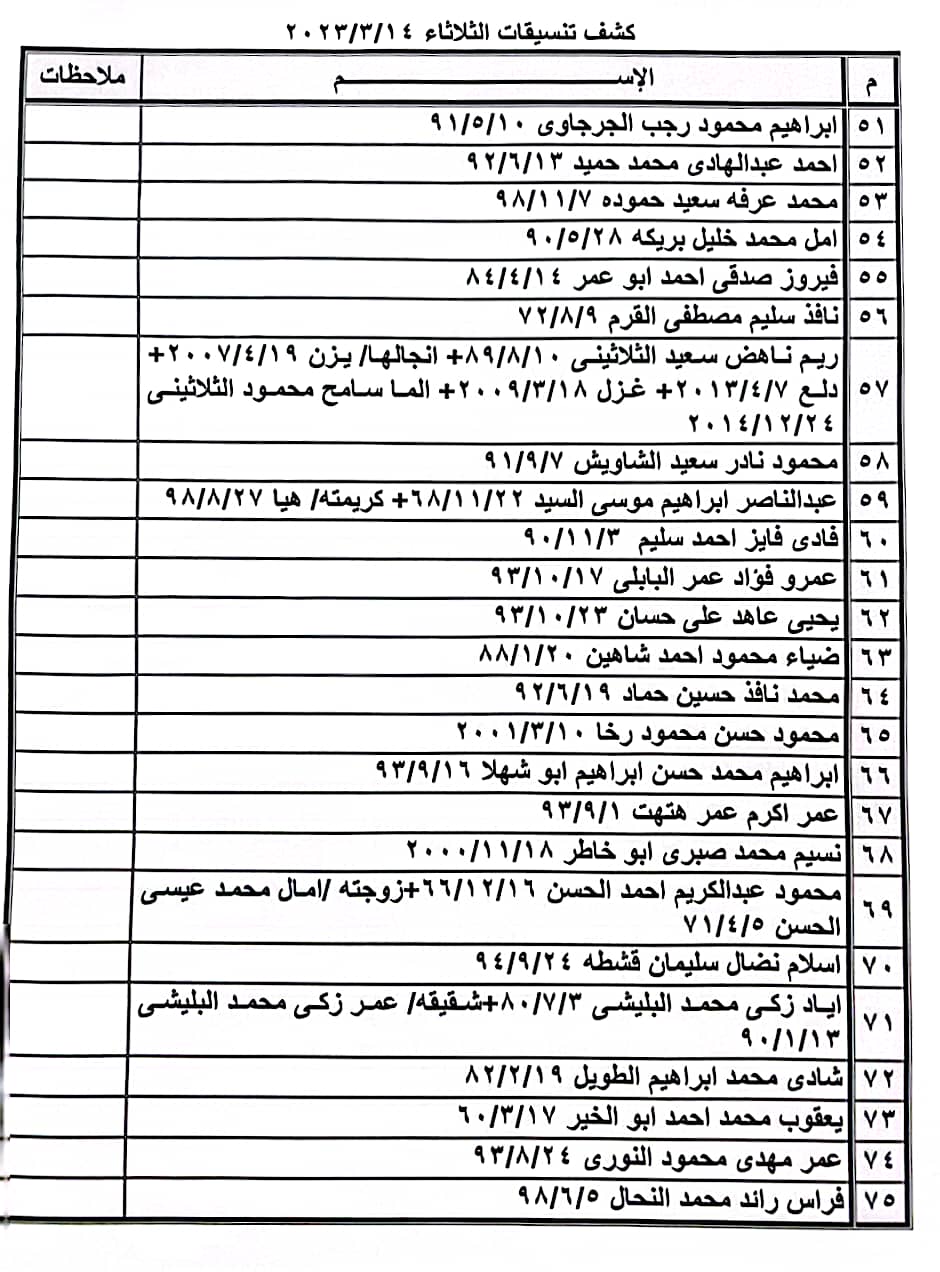 كشف تنسيقات الثلاثاء ٢٠٢٣/٣/١٤
م الإســـــــم ملاحظات
٥١ ابراهيم محمود رجب الجرجاوى ٩١/٥/١٠
٥٢ احمد عبدالهادى محمد حميد ٩٢/٦/١٣
٥٣ محمد عرفه سعيد حموده ٩٨/١١/٧
٥٤ امل محمد خليل بريكه ٩٠/٥/٢٨
٥٥ فيروز صدقى احمد ابو عمر ٨٤/٤/١٤
٥٦ نافذ سليم مصطفى القرم ٧٢/٨/٩
ريم ناهض سعيد الثلاثينى ٨٩/٨/١٠+ انجالها/ يزن ٢٠٠٧/٤/١٩+
٥٧ دلع ٢٠١٣/٤/٧+ غزل ٢٠٠٩/٣/١٨+ الما سامح محمود الثلاثينى
٢٠١٤/١٢/٢٤
٥٨ محمود نادر سعيد الشاويش ٩١/٩/٧
٥٩ عبدالناصر ابراهيم موسى السيد ٦٨/١١/٢٢+ كريمته/ هيا ٩٨/٨/٢٧
٦٠ فادى فايز احمد سليم ٩٠/١١/٣
٦١ عمرو فؤاد عمر البابلى ٩٣/١٠/١٧
٦٢ يحيى عاهد على حسان ٩٣/١٠/٢٣
٦٣ ضياء محمود احمد شاهين ٨٨/١/٢٠
٦٤ محمد نافذ حسين حماد ٩٢/٦/١٩
٦٥ محمود حسن محمود رخا ٢٠٠١/٣/١٠
٦٦ ابراهيم محمد حسن ابراهيم ابو شهلا ٩٣/٩/١٦
٦٧ عمر اكرم عمر هتهت ٩٣/٩/١
٦٨ نسيم محمد صبرى ابو خاطر ٢٠٠٠/١١/١٨
٦٩ محمود عبدالكريم احمد الحسن ٦٦/١٢/١٦+زوجته /امال محمد عيسى
الحسن ٧١/٤/٥
٧٠ اسلام نضال سليمان قشطه ٩٤/٩/٢٤
٧١ اياد زكى محمد البليشى ٨٠/٧/٣+شقيقه/ عمر زكى محمد البليشى
٩٠/١/١٣
٧٢ شادى محمد ابراهيم الطويل ٨٢/٢/١٩
٧٣ يعقوب محمد احمد ابو الخير ٦٠/٣/١٧
٧٤ عمر مهدى محمود النورى ٩٣/٨/٢٤
٧٥ فراس رائد محمد النحال ٩٨/٦/٥